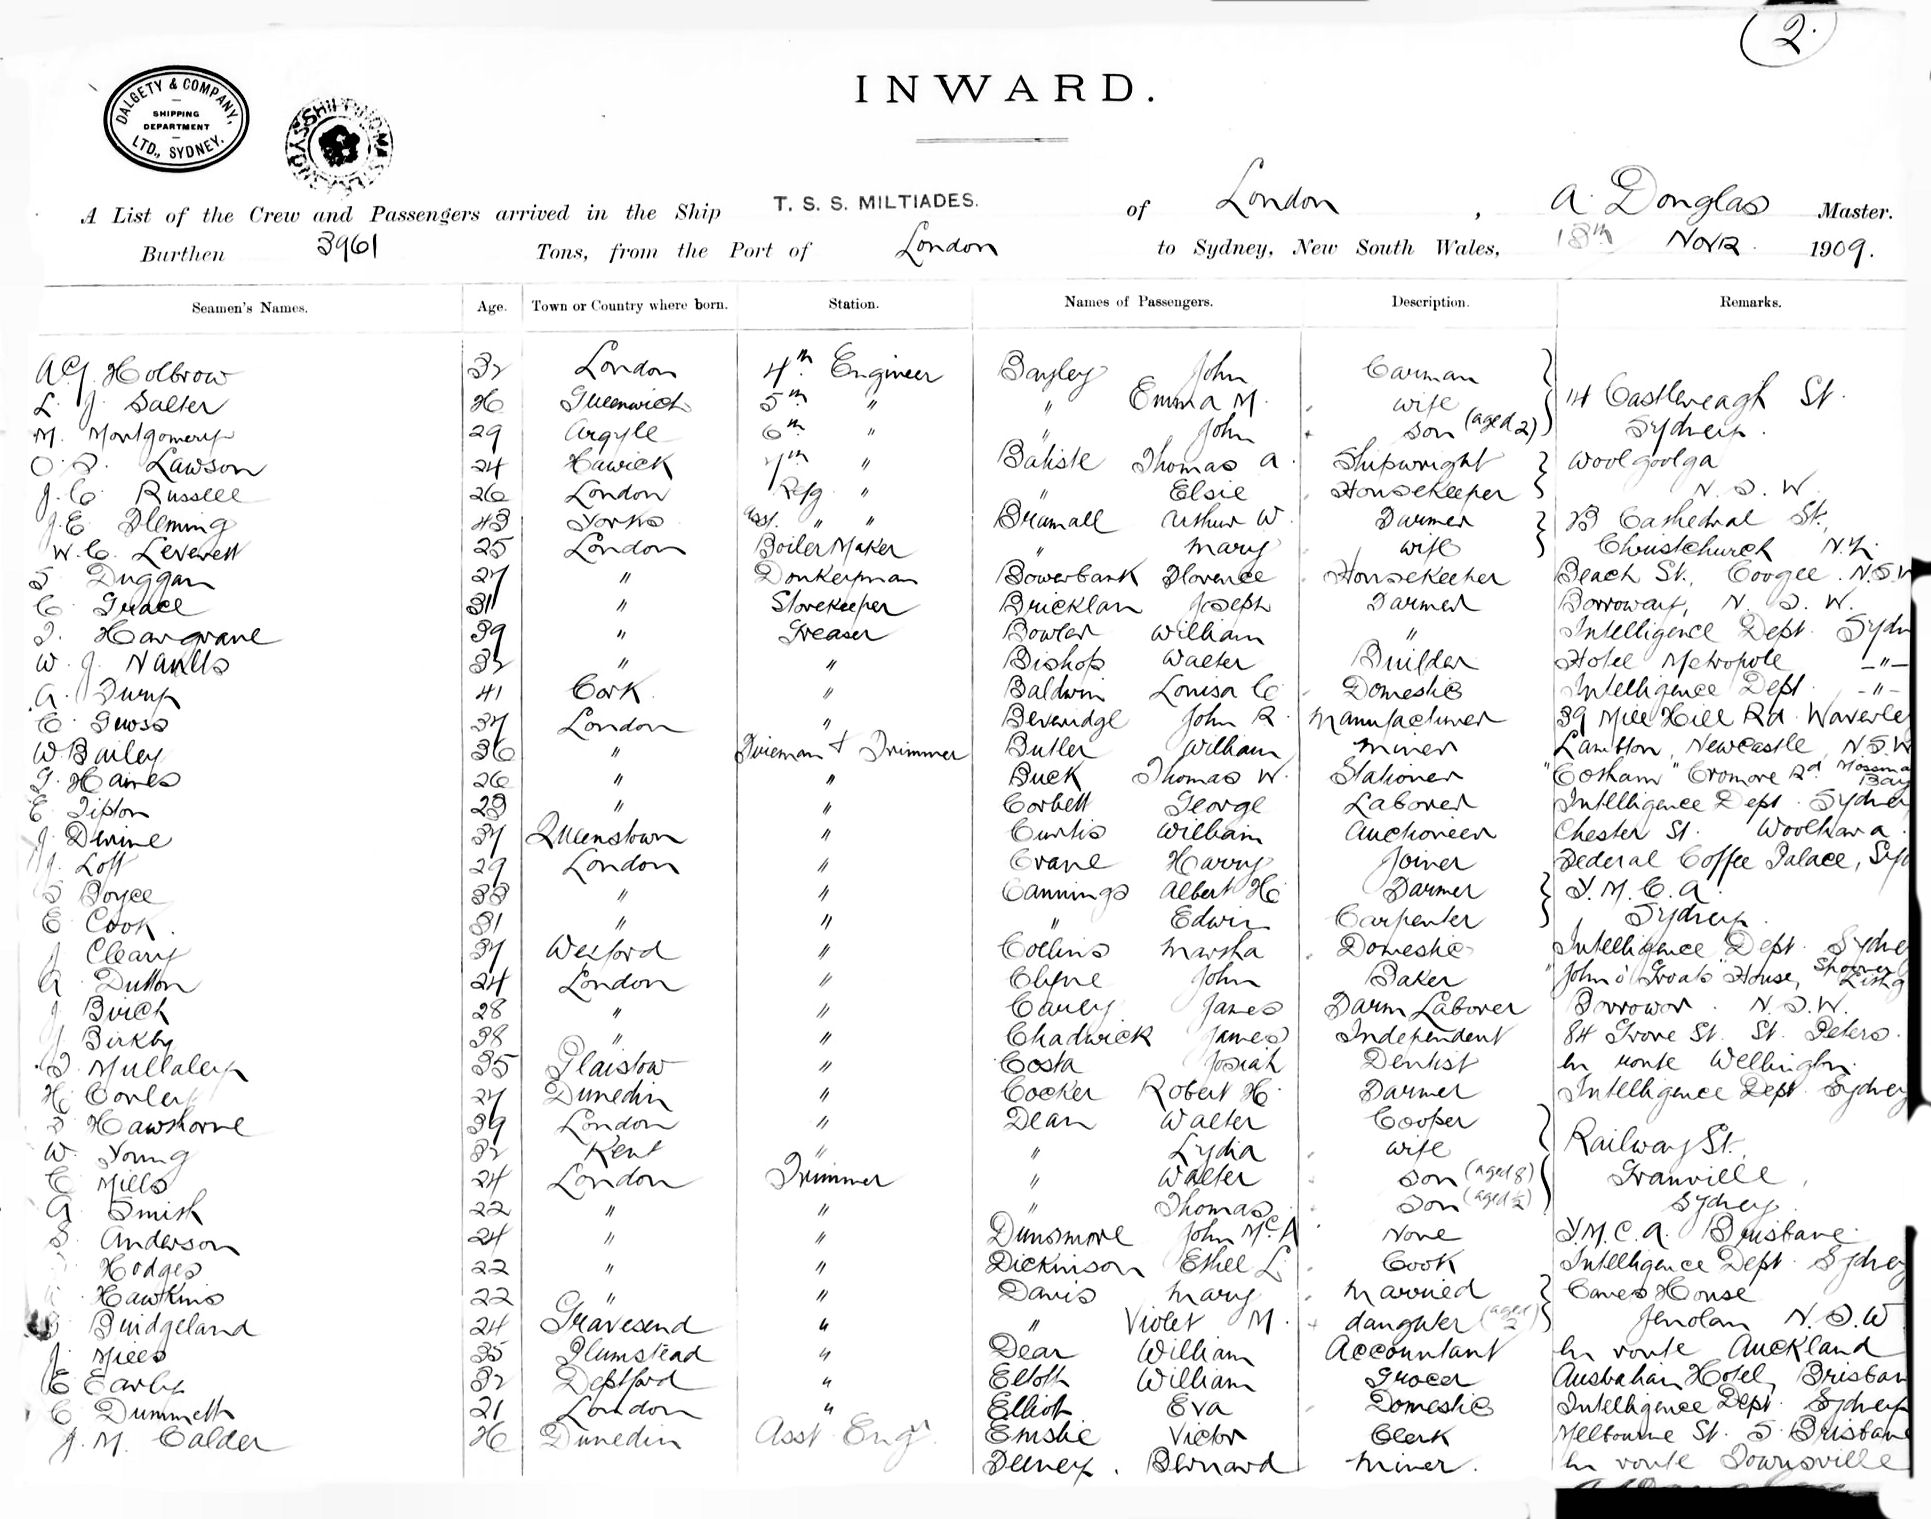 2.
DALGETY & COMPANY, LTD., SYDNEY.
SHIPPING
DEPARTMENT
INWARD.
A List of the Crew and Passengers arrived in the Ship T. S. S. MILTIADES. of London, A. Douglas Master.
Burthen 3961 Tons, from the Port of London to Sydney, New South Wales, 18th Novr. 1909.
Seamen's Names. Age. Town or Country where born. Station. Names of Passengers. Description. Remarks.
Holbrow 32 London 4th Engineer Bayley John Carman
L. J. Salter 26 Greenwich 5th " " Emma M. wife 14 Castlereagh St.
M. Montgomery 29 Argyle 6th " " John son (aged 2) Sydney.
Lawson 24 Hawick 7th " Batiste Thomas A. Shipwright Woolgoolga
J. C. Russell 26 London Rfg. " " Elsie Housekeeper N. S. W.
J. E. Fleming 43 Yorks Asst. " " Bramall Arthur W. Farmer Cathedral St.,
W. C. Leverett 25 London Boiler Maker " Mary wife Christchurch N.Z.
Duggan 27 " Donkeyman Bowerbank Florence Housekeeper Beach St., Coogee. N.S.W
C. Grace 31 " Storekeeper Bricklan Joseph Farmer N. S. W.
Hargrave 39 " Greaser Bowler William " Intelligence Dept. Sydn
W. J. 32 " " Bishop Walter Builder Hotel Metropole -"-
A. 41 Cork. " Baldwin Louisa C. Domestic Intelligence Dept. -"-
37 London " Beveridge John R. Manufacturer 39 Mill Hill Rd. Waverle
W Bailey 36 " Fireman & Trimmer Butler William Miner Lambton, Newcastle, N.S.W
Haines 26 " " Buck Thomas W. Stationer "Cosham" Cromore Rd. Mossma Bay
E. Tipton 23 " " Corbett George Laborer Intelligence Dept. Sydney
J. Devine 37 Queenstown " Curtis William Auctioneer Chester St. Woolhara.
J. Loft 29 London " Crane Harry Joiner Federal Coffee Palace, Syd
Boyce 33 " " Cannings Albert H. Farmer Y. M. C. A.
E. Cook. 31 " " " Edwin Carpenter Sydney.
J. Cleary 37 Wexford " Collins Martha Domestic Intelligence Dept. Sydne
Dutton 24 London " Clyne John Baker "John o' Groats" House,
J Birch 28 " " James Farm Laborer N. S. W.
J Birkby 38 " " Chadwick James Independent 84 Grove St. St. Peters.
Mullaley 35 Plaistow " Costa Josiah Dentist En route Wellington.
H. Conley 27 Dunedin " Cocker Robert H. Farmer Intelligence Dept. Sydney
Hawthorne 39 London " Dean Walter Cooper
W. Young 32 Kent " " Lydia wife Railway St.
C. Mills 24 London Trimmer " Walter son (aged 8) Granville,
Smith 22 " " " Thomas son (aged ½) Sydney.
S. Anderson 24 " " Dunsmore John McA None Y.M.C.A. Brisbane.
Hodges 22 " " Dickinson Ethel L. Cook Intelligence Dept. Sydney
Hawkins 22 " " Davis Mary Married Caves House
Bridgeland 24 Gravesend " " Violet M. daughter (aged 2) Jenolan N. S. W.
J. Mills 35 Plumstead " Dear William Accountant En route Auckland
E Early 32 Deptford " Elloth William Grocer Australian Hotel, Brisban
C. Dummett 21 London " Elliott Eva Domestic Intelligence Dept. Sydney
J. M. Calder 26 Dunedin Asst Engr. Emslie Victor Clerk Melbourne St. S. Brisbane
Bernard Miner. En route Townsville